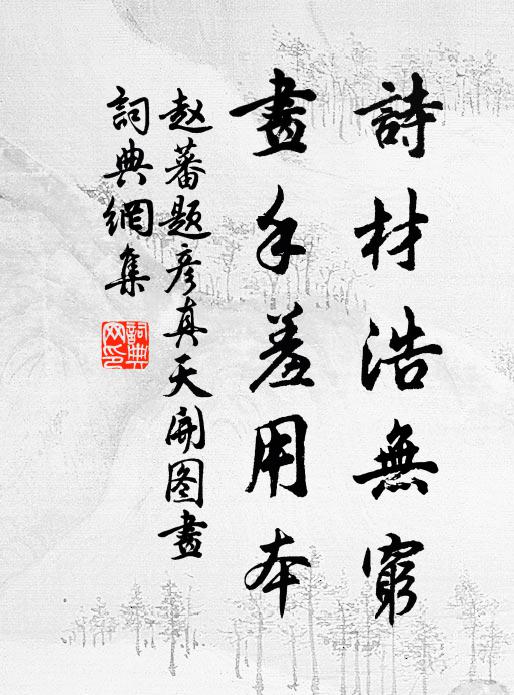 詩材浩無窮
畫手羞用本
赵蕃题彦真天開图畫
詞典網集
詞典网印